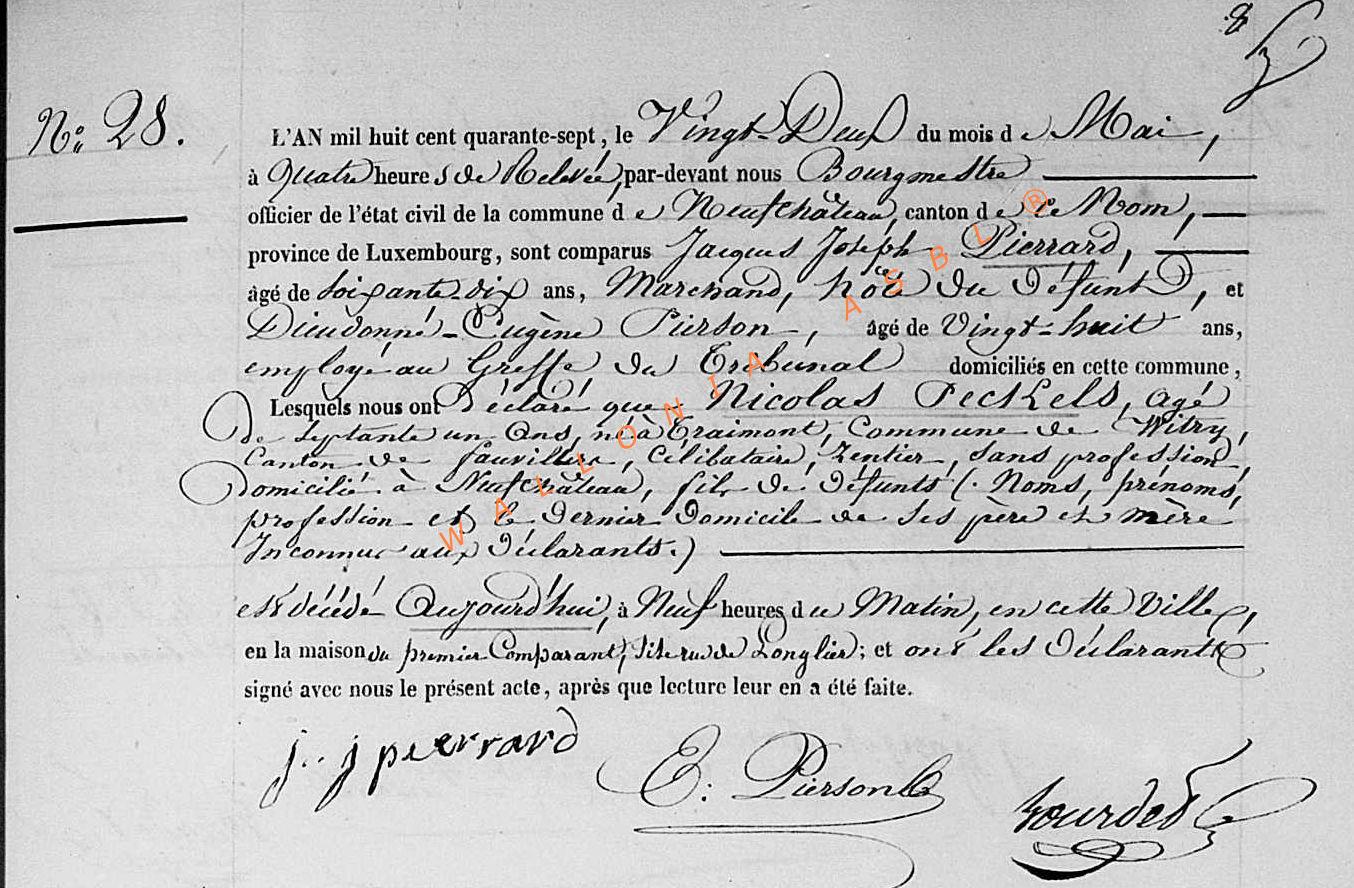 8
N.º 28.
L'AN mil huit cent quarante-sept, le Vingt-Deux du mois de Mai,
à Quatre heures de Relevée, par-devant nous Bourgmestre
officier de l'état civil de la commune de Neufchâteau, canton de ce Nom,
province de Luxembourg, sont comparus Jacques Joseph Pierrard,
âgé de soixante-dix ans, Marchand, hôte du Défunt, et
Dieudonné-Eugène Pierson, âgé de Vingt-huit ans,
employé au Greffe du Tribunal domiciliés en cette commune,
Lesquels nous ont Déclaré que Nicolas Peckels, agé
de septante un Ans, né à Traimont, Commune de Witry,
Canton de Fauvillers, Célibataire, Rentier, sans profession,
domicilié à Neufchâteau, fils de défunts (Noms, prénoms,
profession et le dernier domicile de ses père et mère
Inconnus aux Déclarants.)
est décédé Aujourd'hui, à Neuf heures du Matin, en cette Ville,
en la maison du premier Comparant, Sise rue de Longlier; et ont les Déclarants
signé avec nous le présent acte, après que lecture leur en a été faite.
j. j pierrard
E: Pierson
WALLONIA ASBL ®